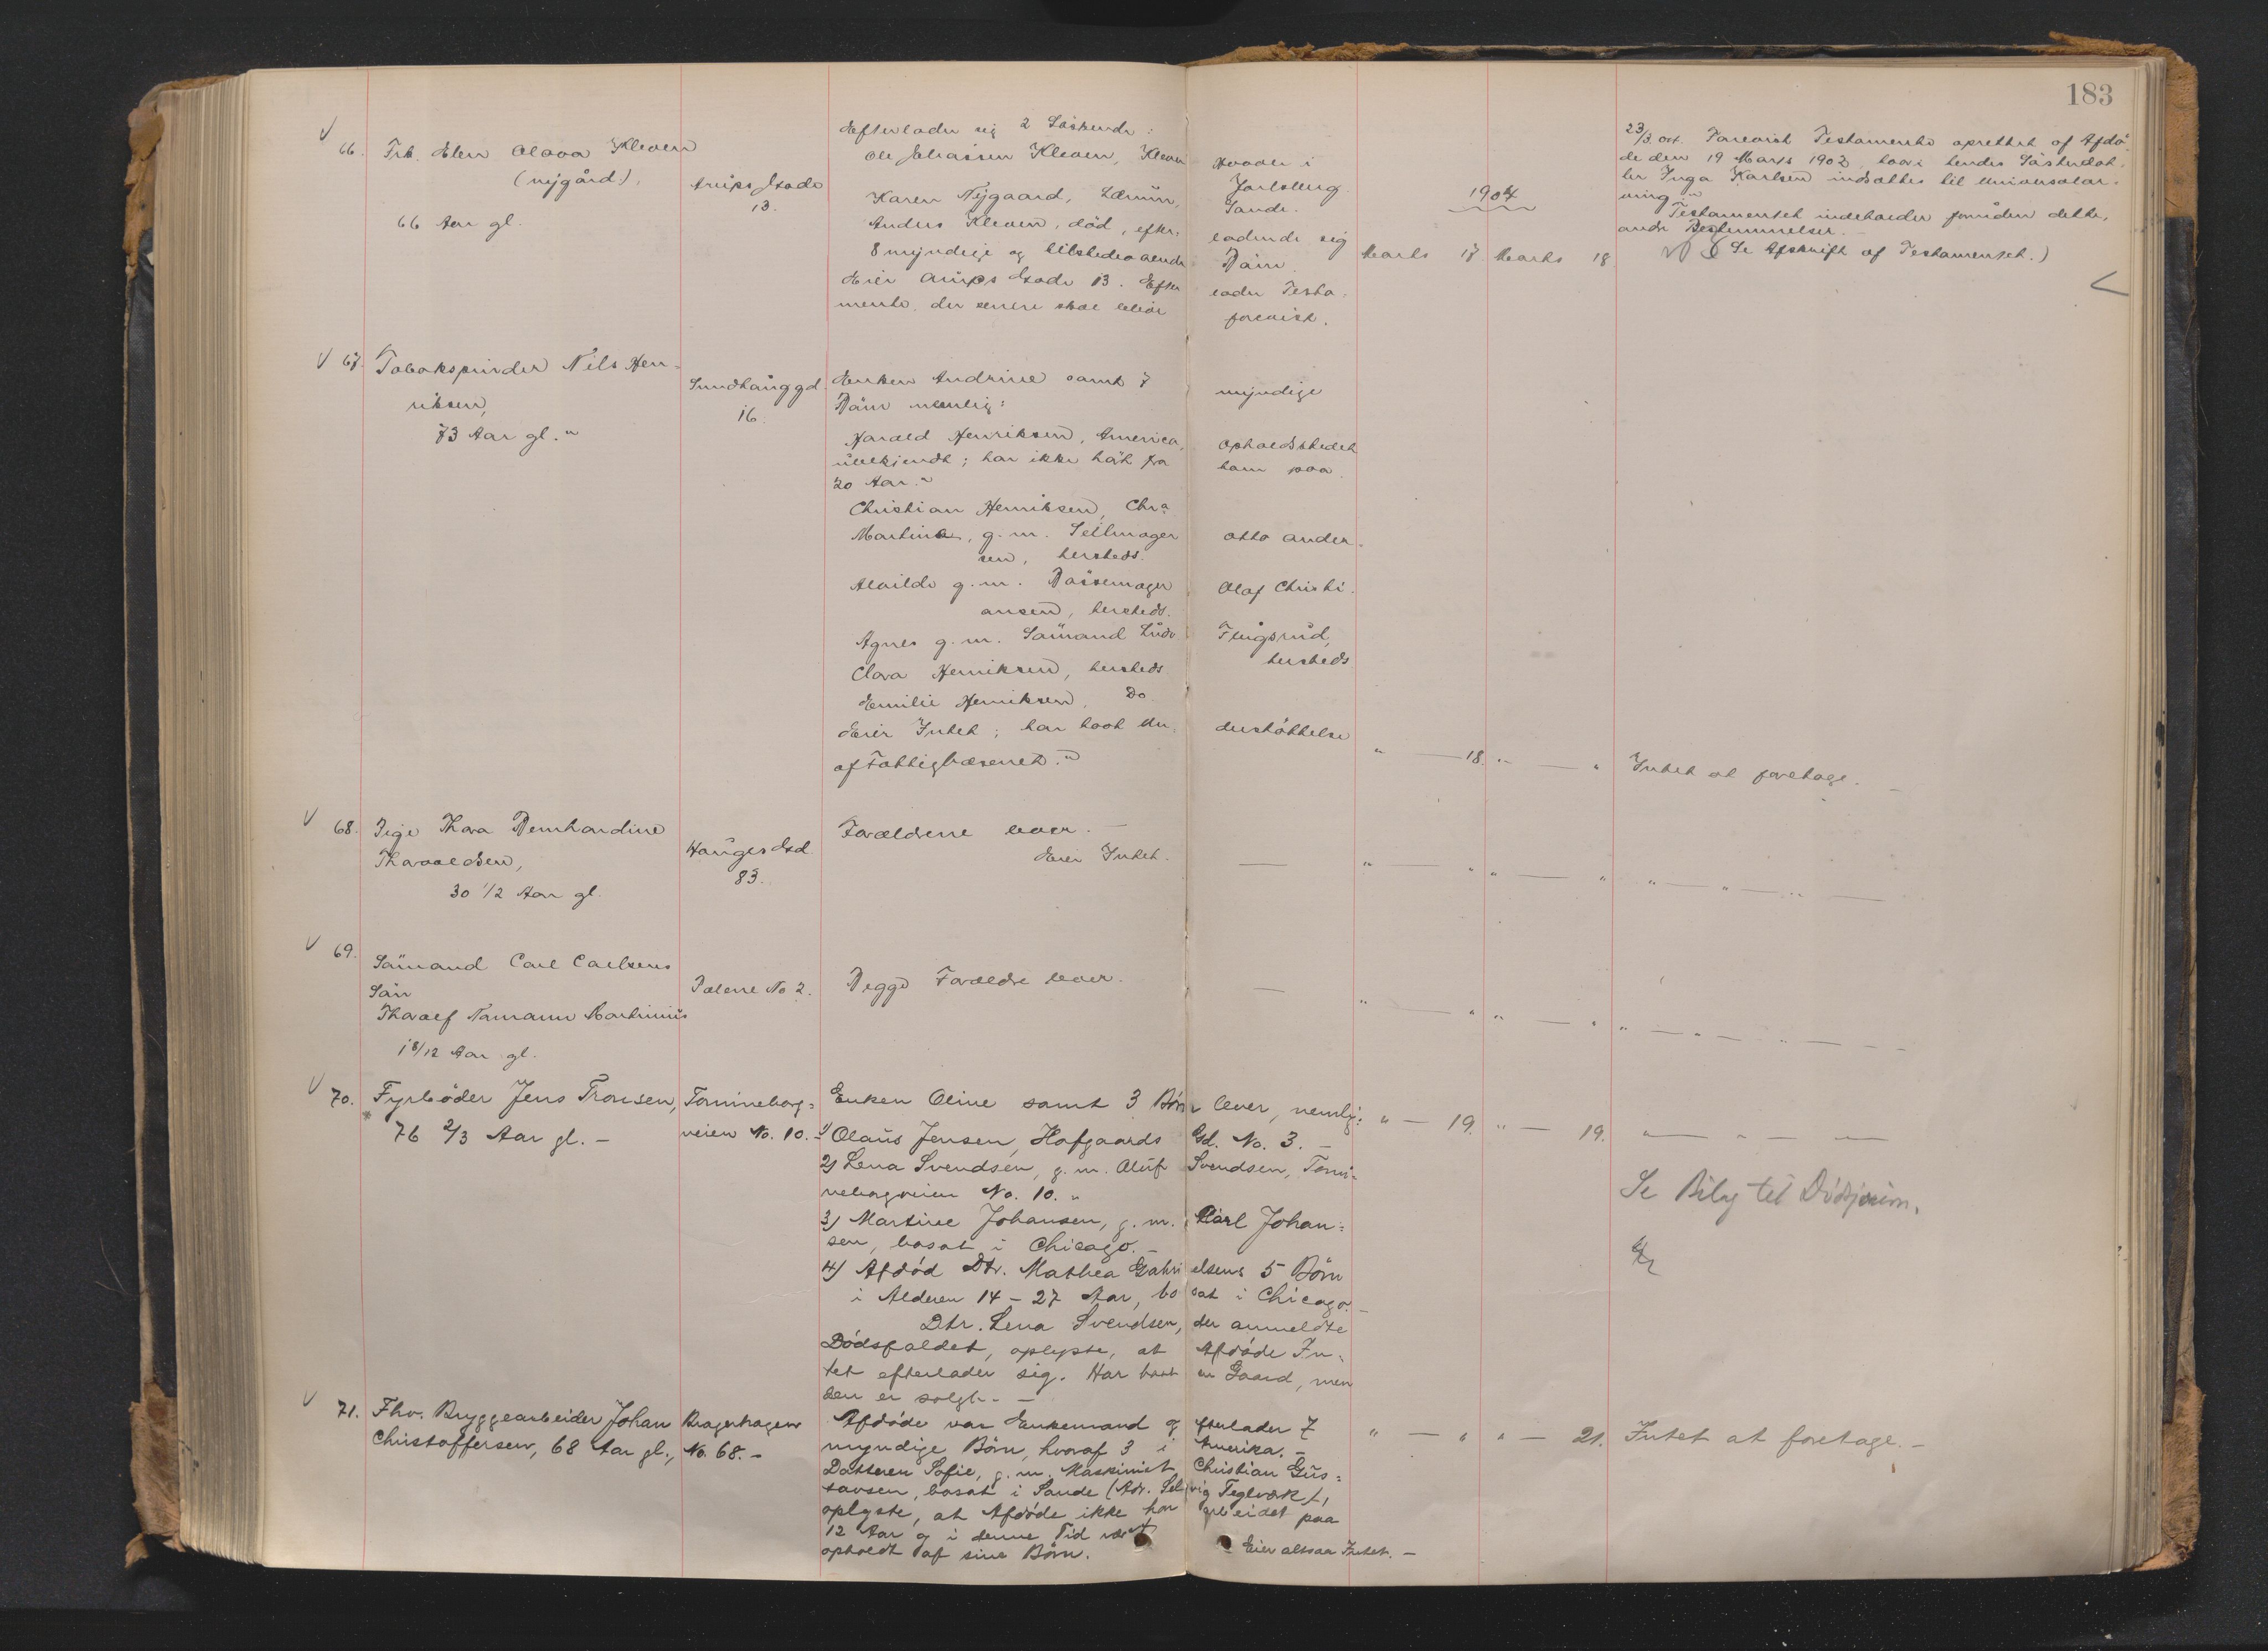 183
66. Frk. Elen Olava Kleven
(nygård.),
66 Aar gl.
Arups Gade
13.
Efterlader sig 2 Søskende:
Ole Johassen Kleven, Kleven
Skoger i
Jarlsberg
Karen Nygaard,
Sande.
Anders Kleven, død, efter-
ladende sig
8 myndige og tilstedeværende
Børn.
Eier Arups Gade 13. Efter
lader Testa-
mente, der senere skal blive
forevist.
1904
Marts 17 Marts 18
23/3 04. Forevist Testamente oprettet af Afdø-
de den 19 Marts 1902, hvori hendes Søsterdat-
ter Inga Karlsen indsættes til Universalar-
ving."
Testamentet indeholder foruden dette,
andre Bestemmelser.
(Se Afskrift af Testamentet.)
67. Tobakspinder Nils Hen-
riksen,
73 Aar gl."
Sundhauggd.
16.
Enken Andrine samt 7
myndige
Børn nemlig:
Harald Henriksen, America,
Opholdsstedet
ubekjendt; har ikke hørt fra
ham paa
20 Aar."
Christian Henriksen, Chra
Martine, g.m. Seilmager
Otto Ander-
sen, hersteds.
Alvilde g.m. Bøssemager
Olaf Christi-
ansen, hersteds.
Agnes g.m. Sømand Ludv.
Tingsrud,
hersteds
Clara Henriksen, hersteds
Emilie Henriksen, Do.
Eier Intet; har havt Un-
derstøttelse
af Fattigvæsenet."
" — 18. " — "
Intet at foretage. —
68. Pige Thora Bernhardine
Thorvaldsen,
30 1/2 Aar gl.
Hauges Gd
83.
Forældrene lever. —
Eier Intet.
— " — " " — " " — " — " —
69. Sømand Carl Carlsens
Søn
Thoralf Normann Martinius
1 8/12 Aar gl.
Tølerne No 2.
Begge Forældre lever.
— " — " " — " " — " — " —
70. Fyrbøder Jens Tronsen,
76 2/3 Aar gl. —
Tornineborg-
veien No. 10. —
Enken Oline samt 3 Børn lever, nemlig:
1) Olaus Jensen, Hofgaards Gd. No. 3. —
2) Lena Svendsen, g.m. Oluf Svendsen, Torni-
neborgveien No. 10."
3) Martine Johansen, g.m. Karl Johan-
sen, bosat i Chicago. —
4) Afdød Dtr. Mathea Gabrielsens 5 Børn
i Alderen 14 – 27 Aar, bosat i Chicago. —
Dtr. Lena Svendsen, der anmeldte
Dødsfaldet, oplyste, at Afdøde In-
tet efterlader sig. Har havt en Gaard, men
den er solgt. —
" — 19. " — 19. " — " — " —
Se Bilag til Dødsjourn.
71. Fhv. Bryggearbeider Johan
Christoffersen, 68 Aar gl.,
Bragernagen
No. 68. —
Afdøde var Enkemand og efterlader 7
myndige Børn, hvoraf 3 i Amerika. —
Datteren Sofie, g.m. Maskinist Christian Gus-
tavsen, bosat i Sande (Adr. Selvig Teglværk),
oplyste, at Afdøde ikke har arbeidet paa
12 Aar og i denne Tid været
opholdt af sine Børn. Eier altsaa Intet. —
" — " " — 21. Intet at foretage. —